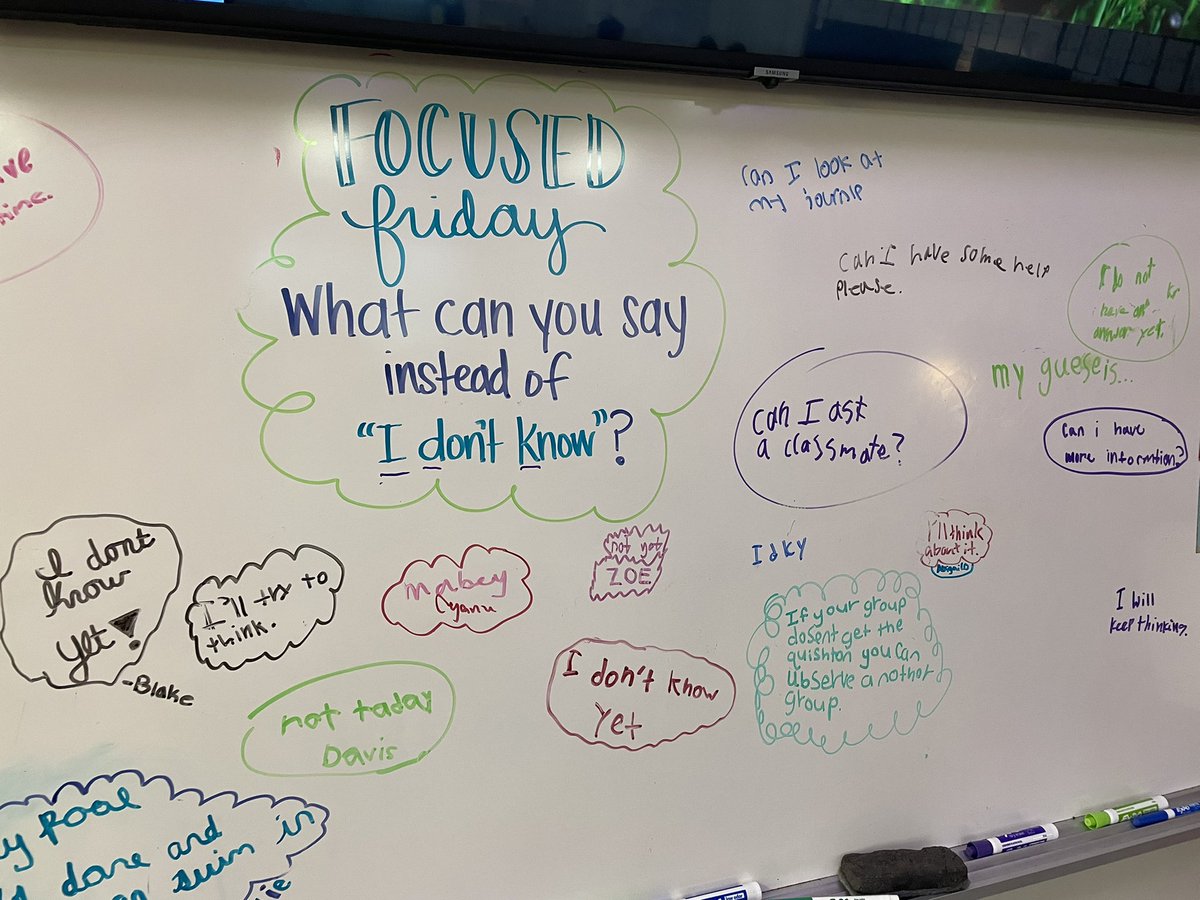 SAMSUNG
FOCUSED
friday
What can you say
instead of
"I don't know"?
can I look at
my journle
Can I have some help
please.
I do not
have an
answer yet.
my guese is...
can I ask
a classmate?
Can i have
more information?
I dont
know
yet!
-Blake
I'll try to
think.
mabey
not yet
ZOE
IdKY
I'll think
about it.
I will
keep thinking.
not taday
Davis
I don't know
yet
If your group
dosent get the
quishton you can
ubserve a nothor
group.
dane and